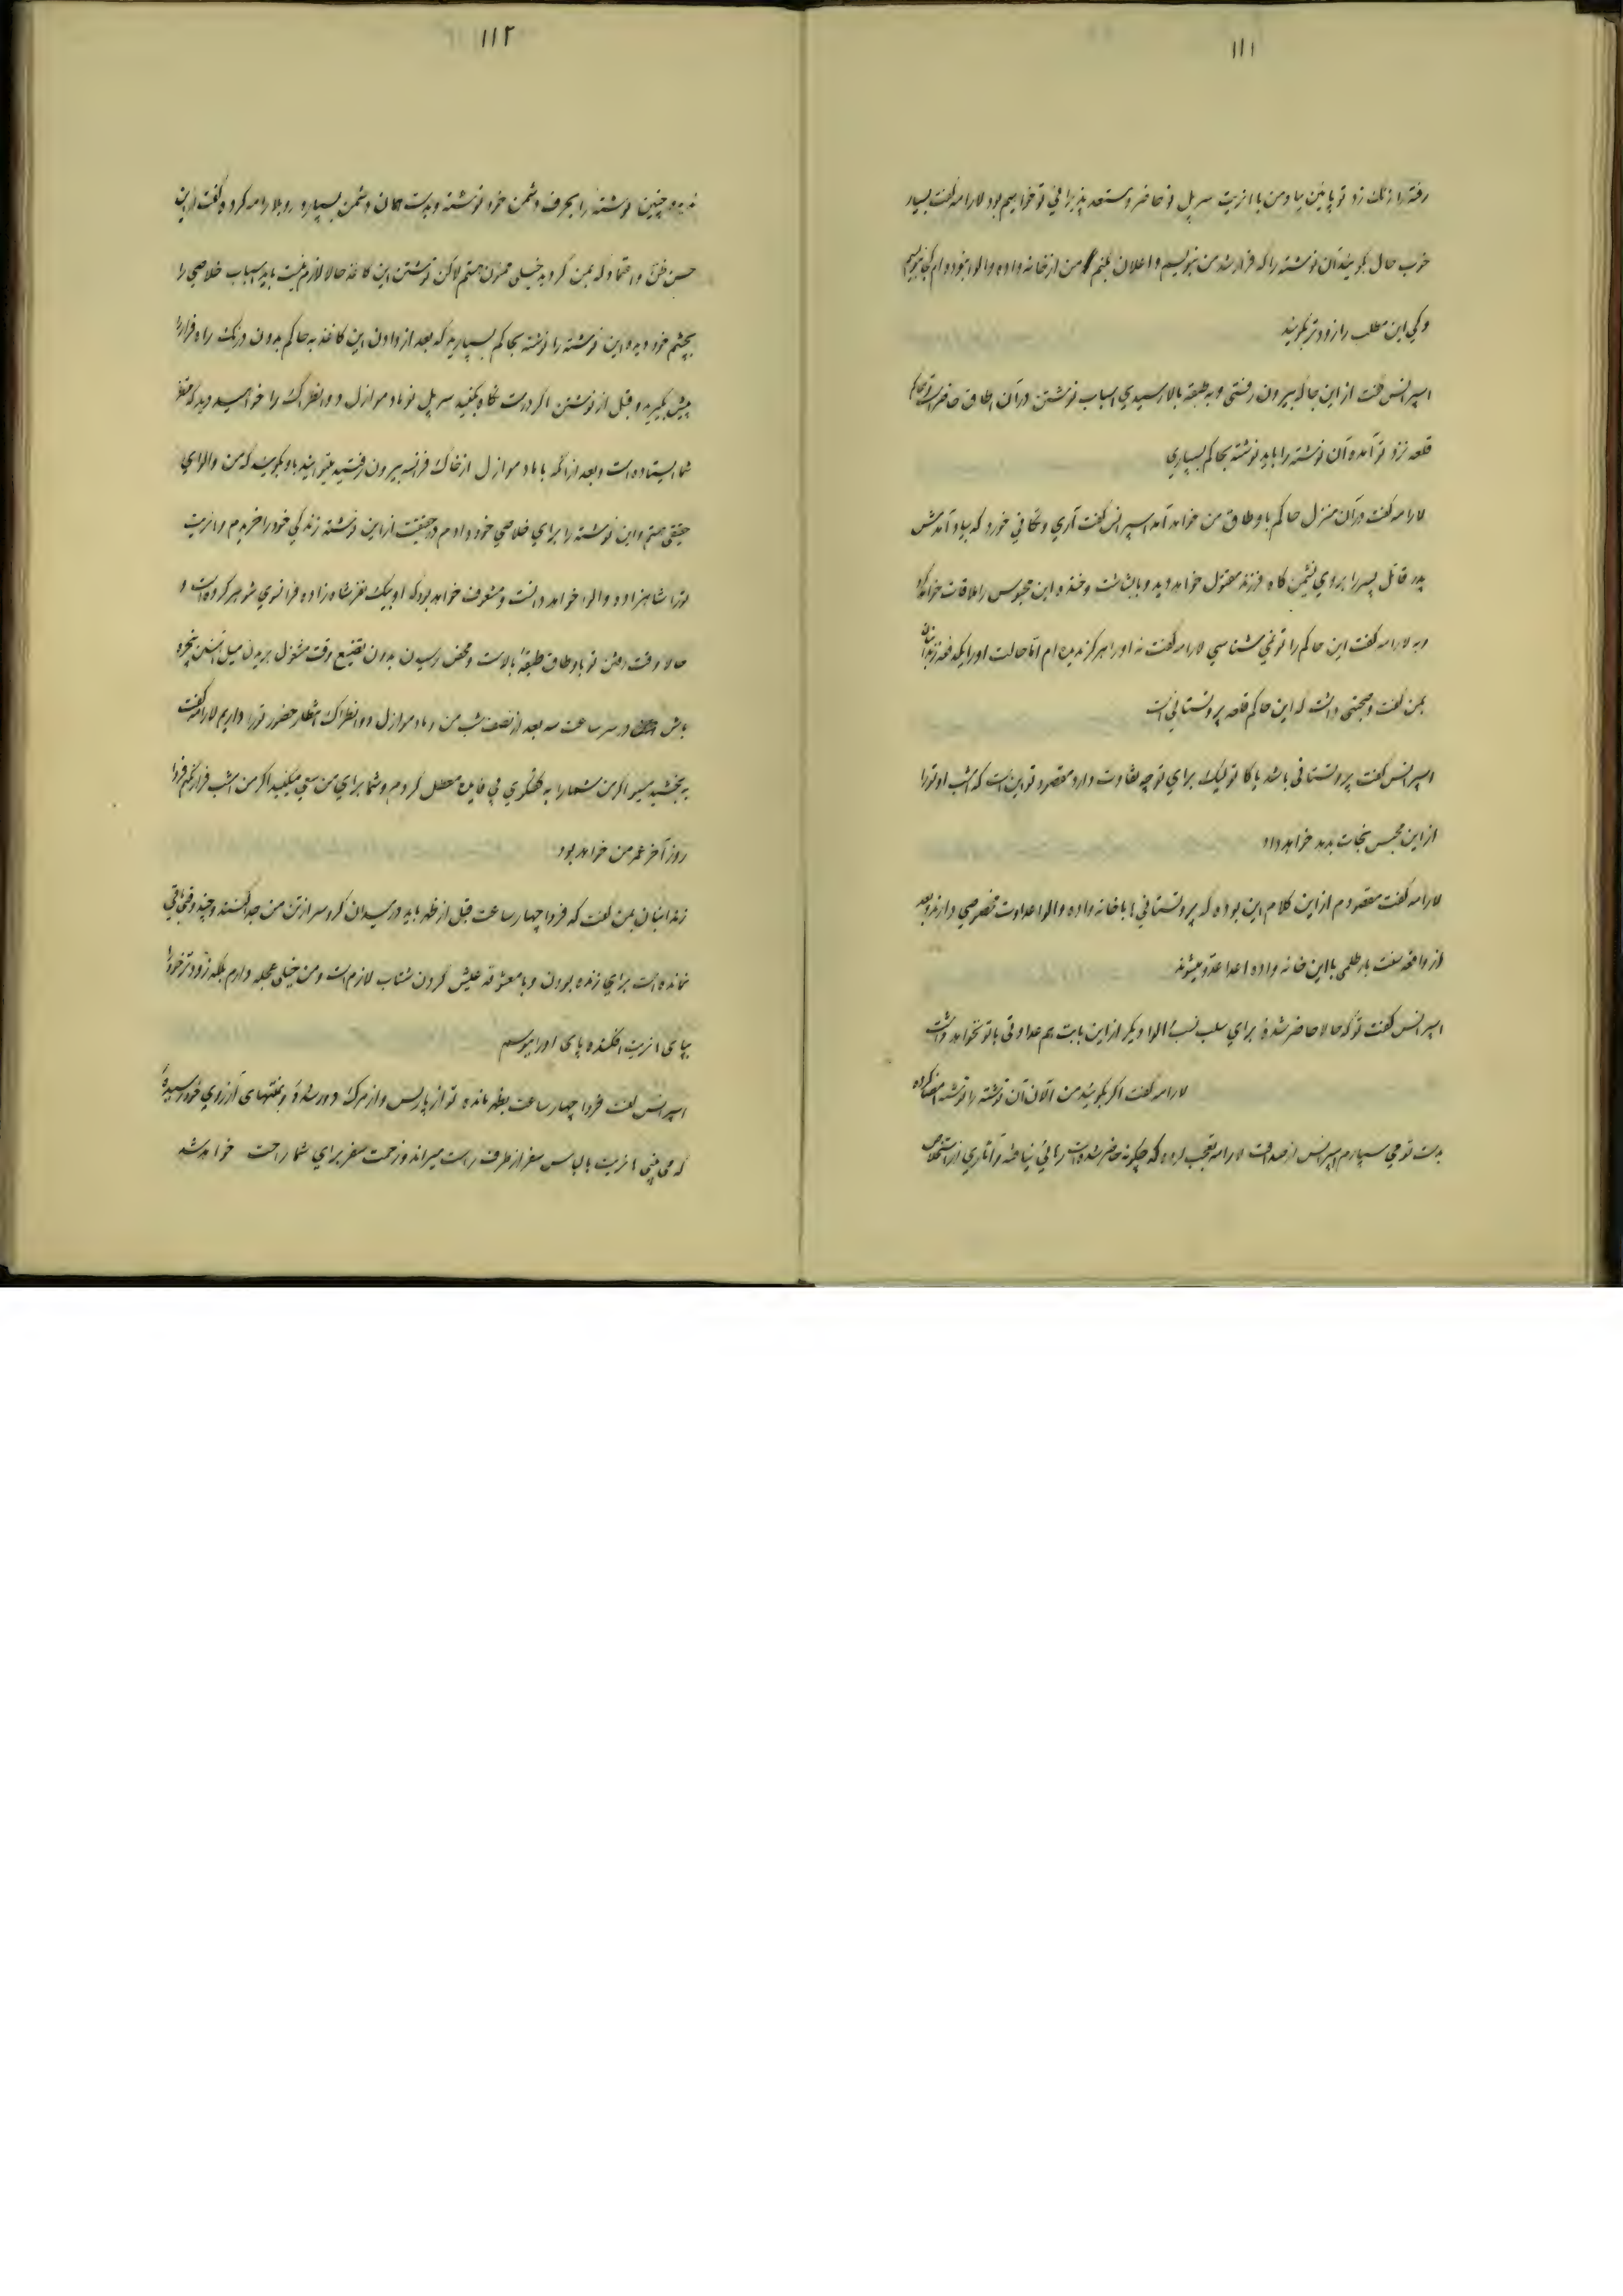 ۱۱۱
رفته را زنک زد تو پائین بیا و من با انریت سر پل تو حاضر و مستعد پذیرائی تو خواهیم بود لارامه گفت بسیار
خوب حال بگوئید آن نوشته را که قرار شد من بنویسم و اعلان بکنم من از خانه واده والوا نبوده ام کجا بنویسم
و کی این مطلب را زودتر بگویند
اسپرانس گفت از این جا که بیرون رفتی و به طبقه بالا رسیدی اسباب نوشتن در آن اطاق حاضر است حاکم
قلعه نزد تو آمده آن نوشته را باید نوشته بحاکم بسپاری
لارامه گفت در آن منزل حاکم باوطاق من خواهد آمد اسپرانس گفت آری و نگاهی خورد که بیاد آمدش
پدر قاتل پسر را بروی نشیمن گاه فرزند مقتول خواهد دید و با بشاشت و خنده این محبوس را ملاقات خواهد کرد
و به لارامه گفت این حاکم را تو نمی شناسی لارامه گفت نه او را هرگز ندیده ام اما حالت او را یکدفعه زندانبان
بمن گفت و صحبتی داشت که این حاکم قلعه پروتستانی است
اسپرانس گفت پروتستانی باشد یا کاتولیک برای تو چه تفاوت دارد مقصود تو این است که شب او تو را
از این محبس نجات بدهد خواهد داد
لارامه گفت مقصودم از این کلام این بوده که پروتستانی ها با خانه واده والوا عداوت مخصوصی دارند و بعد
از واقعه سنت بارطلمی با این خانه واده اعدا عدو میشوند
اسپرانس گفت تو که حالا حاضر شدهٔ برای سلب نسب الوا دیگر از این بابت هم عداوتی با تو نخواهد داشت
لارامه گفت اگر بگوئید من الآن آن نوشته را نوشته امضا کرده
بدست تو می سپارم اسپرانس از صداقت لارامه تعجب کرده که چگونه حاضر شده است
۱۱۲
ندیده چنین نوشته را بحرف دشمن خود نوشته و بدست همان دشمن بسپارد رو بلارامه کرده گفت از این
حسن ظن و اعتماد که بمن کردید خیلی ممنون هستم لاکن نوشتن این کاغذ حالا لازم نیست باید اسباب خلاصی را
بچشم خود دیده این نوشته را نوشته بحاکم بسپارید که بعد از دادن این کاغذ به حاکم بدون درنک راه فرار را
پیش بگیرید و قبل از نوشتن اگر درست نگاه بکنید سر پل نو مادموازل دوانطراک را خواهید دید که منتظر
شما ایستاده است و بعد از آنکه با مادموازل از خاک فرانسه بیرون رفتید میتوانید باو بگوئید که من والوای
حقیقی هستم و این نوشته را برای خلاصی خود دادم در حقیقت از این نوشته زندگی خود را خریدم و انریت
تو را شاهزاده والوا خواهد دانست و مشعوف خواهد بود که او بیک نفر شاه زاده فرانسوی شوهر کرده است و
حالا وقت رفتن تو باوطاق طبقهٔ بالاست و محض رسیدن بدون تضییع وقت مشغول بریدن میل آهنین پنجره
باش در سر ساعت سه بعد از نصف شب من و مادموازل دوانطراک انتظار حضور تو را داریم لارامه گفت
به بخشید مسیو اگر من شما را به گفتگوی بی فایده معطل کردم و شما برای من سعی میکنید اگر من امشب فرار نکنم فردا
روز آخر عمر من خواهد بود
زندانبان بمن گفت که فردا چهار ساعت قبل از ظهر باید در میدان گرو سر از تن من جدا کنند و چندوقتی باقی
نمانده است برای زنده بودن و با معشوقه عیش کردن شتاب لازم است و من خیلی عجله دارم بلکه زودتر خود را
بپای انریت افکنده پای او را ببوسم
اسپرانس گفت فردا چهار ساعت بظهر مانده تو از پاریس و از مرک دور شدهٔ و بمنتهای آرزوی خود رسیدهٔ
که می بینی انریت با لباس سفر از طرف راست میراند و زحمت سفر برای شما راحت خواهد شد